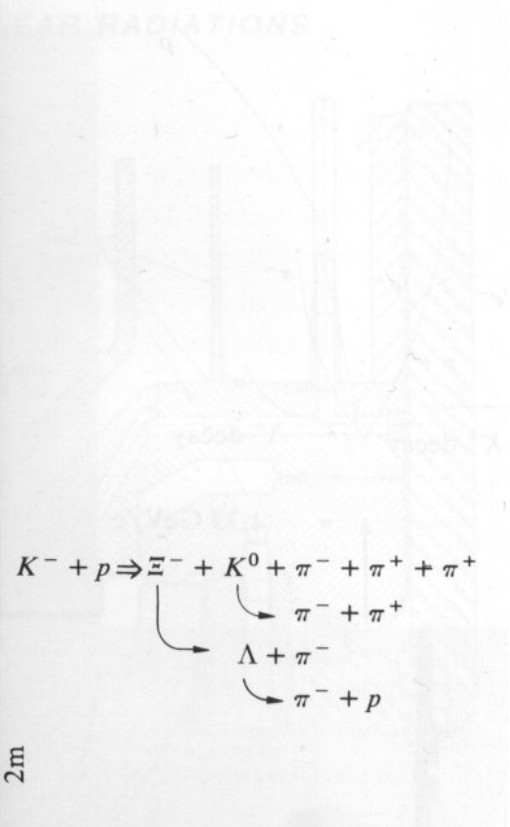 K⁻ + p ⇒ Ξ⁻ + K⁰ + π⁻ + π⁺ + π⁺
π⁻ + π⁺
Λ + π⁻
π⁻ + p
2m